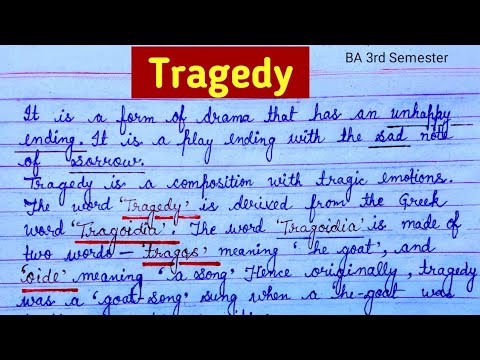 Tragedy
BA 3rd Semester
It is a form of drama that has an unhappy
ending. It is a play ending with the sad note
of ssorrow.
Tragedy is a composition with tragic emotions.
The word 'Tragedy' is derived from the Greek
word 'Tragoidia'. The word 'Tragoidia' is made of
two words - 'tragos' meaning 'he goat', and
'oide' meaning 'a song' Hence originally, tragedy
was a 'goat-song' sung when a 'he-goat was